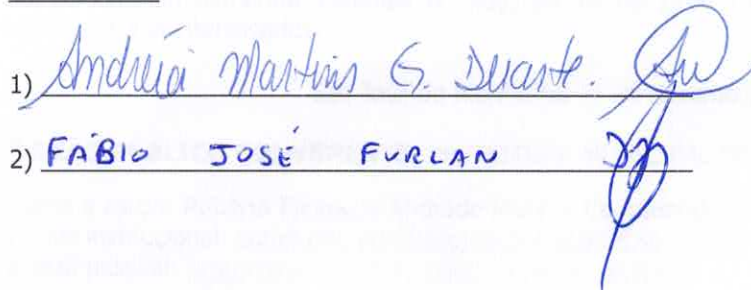 1) Andréia Martins G. Duarte.
2) FÁBIO JOSÉ FURLAN